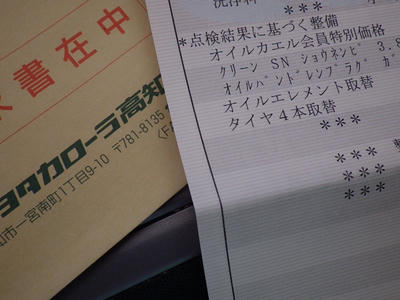 求書在中
ヨタカローラ高知
知市一宮南町1丁目9-10 〒781-8135
<FA
洗浄料
***
*点検結果に基づく整備
オイルカエル会員特別価格
クリーン SN ショウネンピ 3.8
オイルパンドレンプラグ ガ
オイルエレメント取替
タイヤ4本取替
***
***
***
***